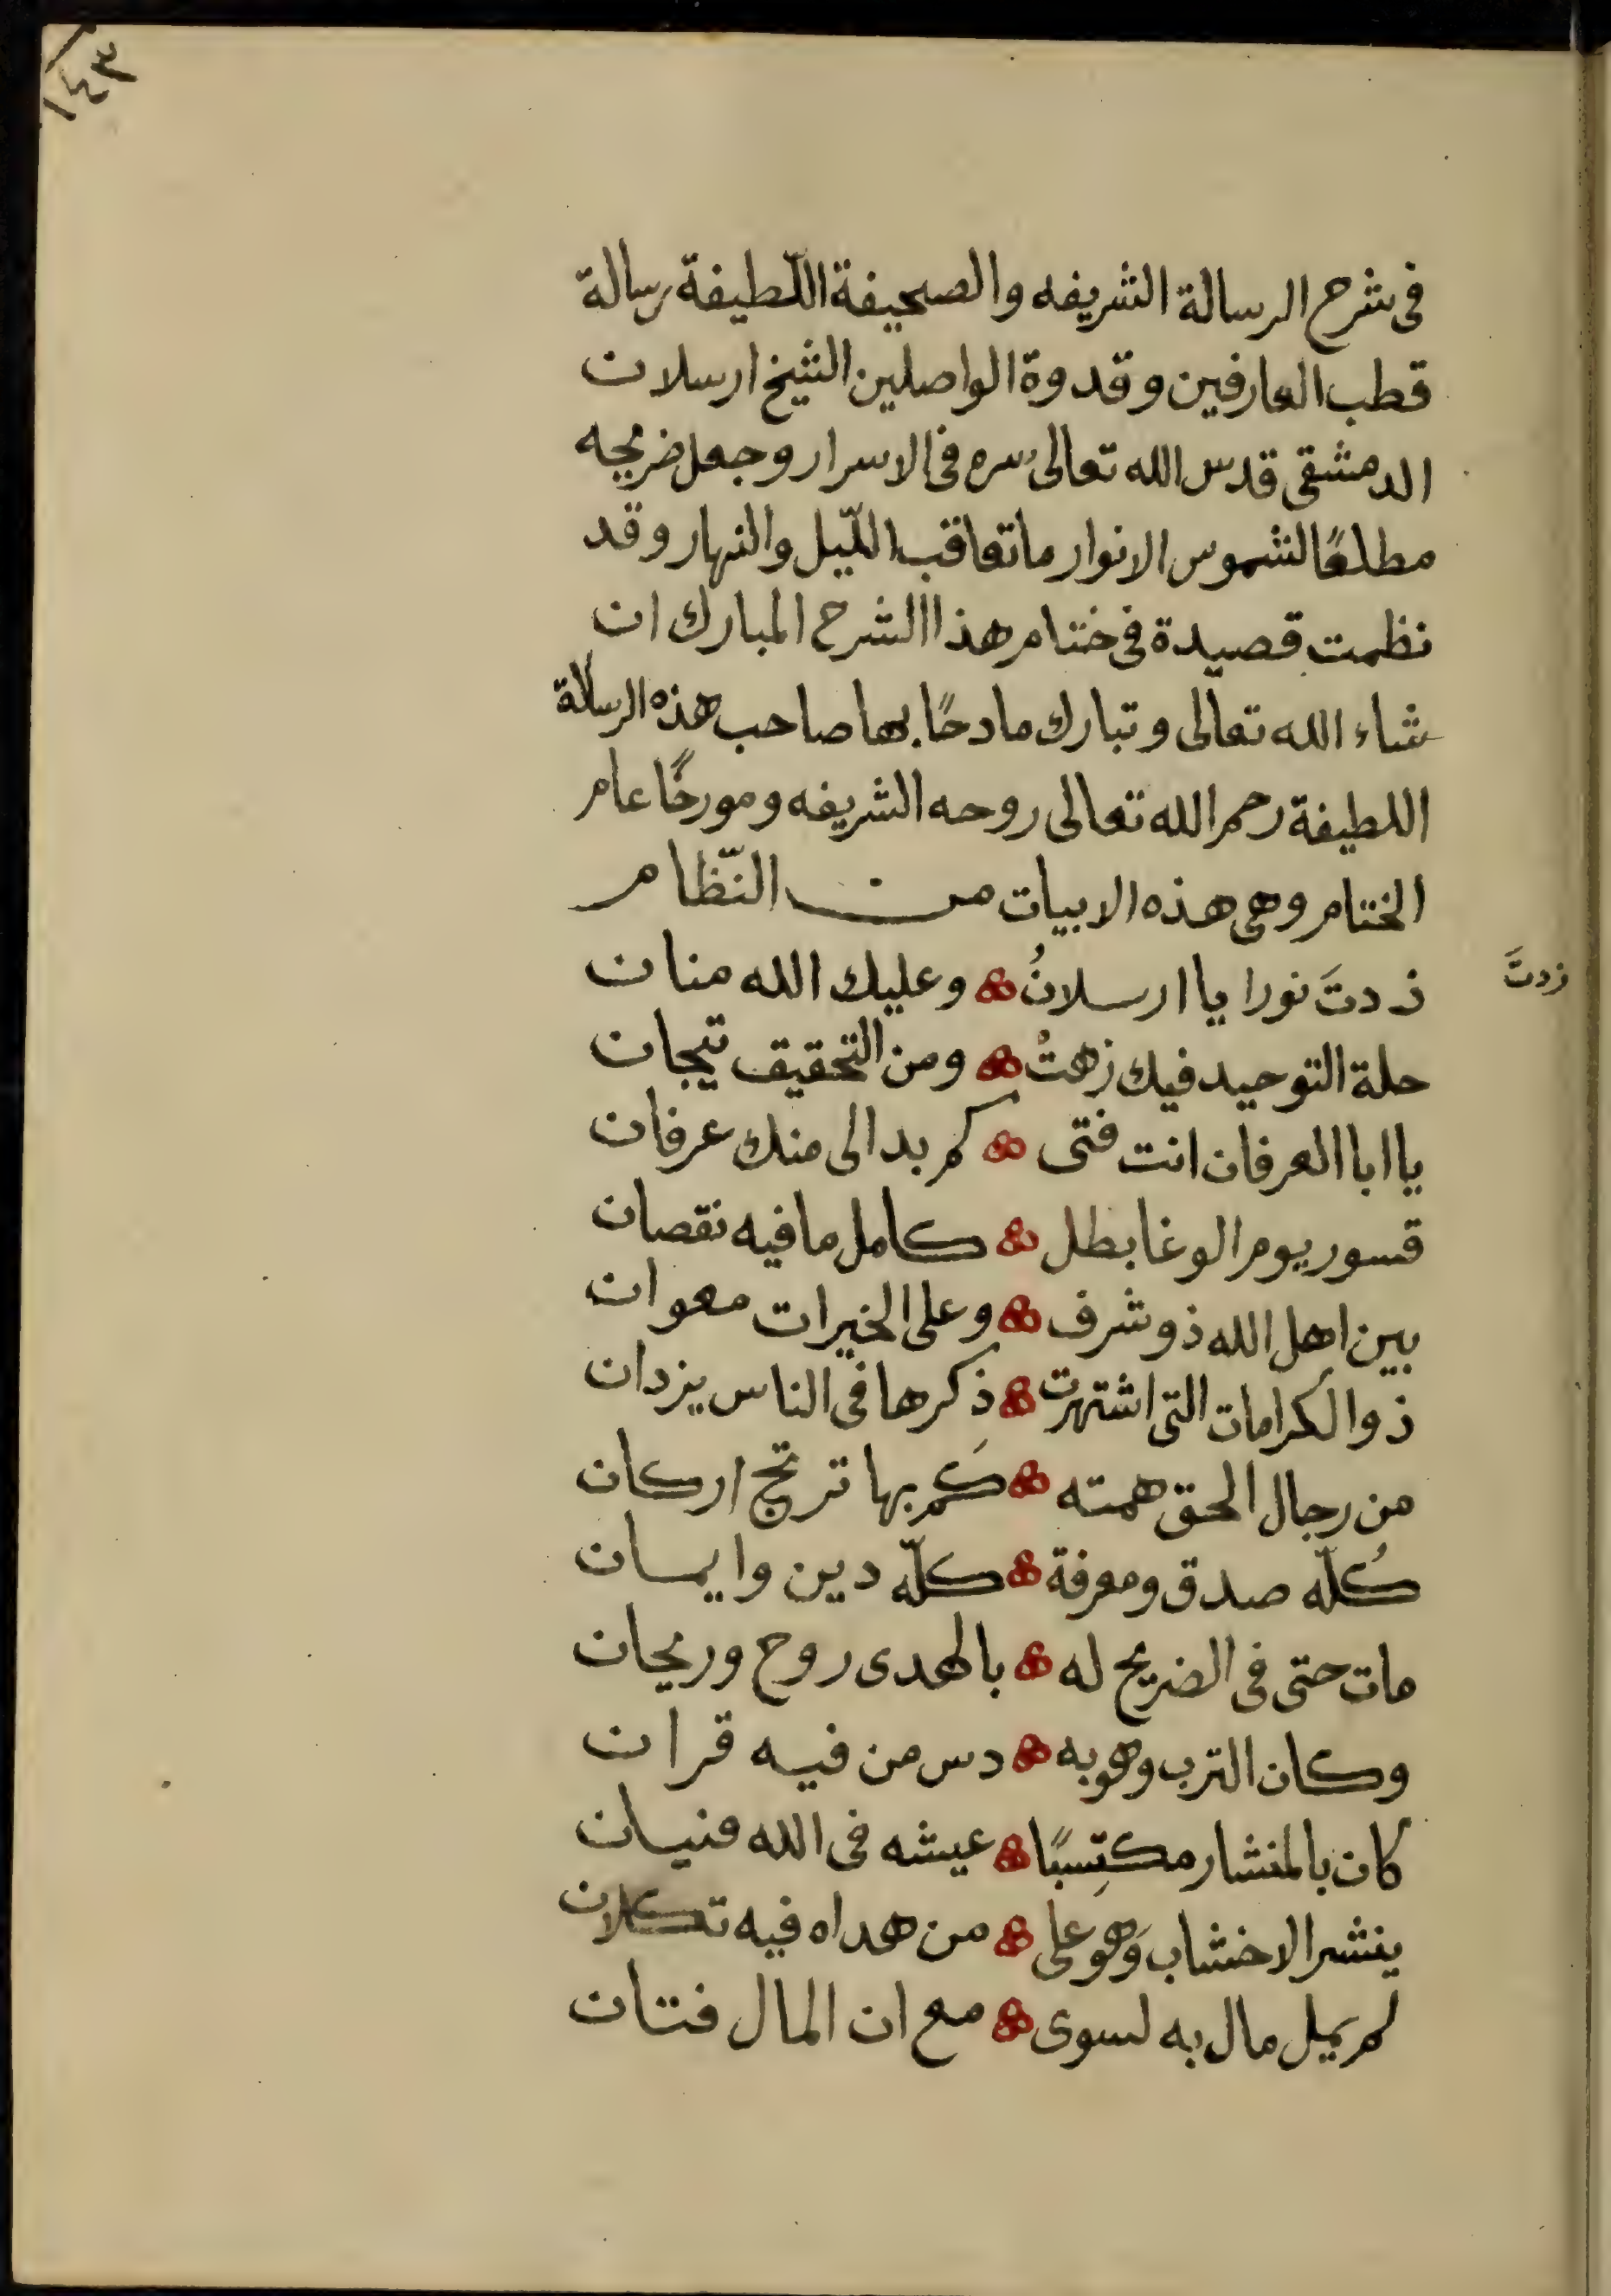 ١٤٣
فى شرح الرسالة الشريفه والصحيفة اللّطيفة رسالة
قطب العارفين وقدوة الواصلين الشيخ ارسلان
الدمشقى قدس الله تعالى سره فى الاسرار وجعل ضريحه
مطلعًا لشموس الانوار ما تعاقب اللّيل والنهار وقد
نظمت قصيدة فى ختام هذا الشرح المبارك ان
شاء الله تعالى وتبارك مادحًا بها صاحب هذه الرسالة
اللطيفة رحم الله تعالى روحه الشريفه ومورخًا عام
الختام وهى هذه الابيات من النّظام
زدتَ
ذدتَ نورا يا ارسلانُ ۞ وعليك الله منان
حلة التوحيد فيك زهتْ ۞ ومن التحقيق تيجان
يا ابا العرفان انت فتى ۞ كم بدا لى منك عرفان
قسور يوم الوغا بطل ۞ كامل ما فيه نقصان
بين اهل الله ذو شرف ۞ وعلى الخيرات معوان
ذو الكرامات التى اشتهرت ۞ ذِكرها فى الناس يزدان
من رجال الحق همته ۞ كَم بها ترتج اركان
كُلّه صدق ومعرفة ۞ كلّه دين وايمان
مات حتى فى الضريح له ۞ بالهدى روح وريحان
وكان الترب وهو به ۞ دس من فيه قران
كان بالمنشار مكتِسبًا ۞ عيشه فى الله فنيان
ينشر الاخشاب وَهو على ۞ من هداه فيه تكلان
لم يَمِل مال به لسوى ۞ مع ان المال فتان